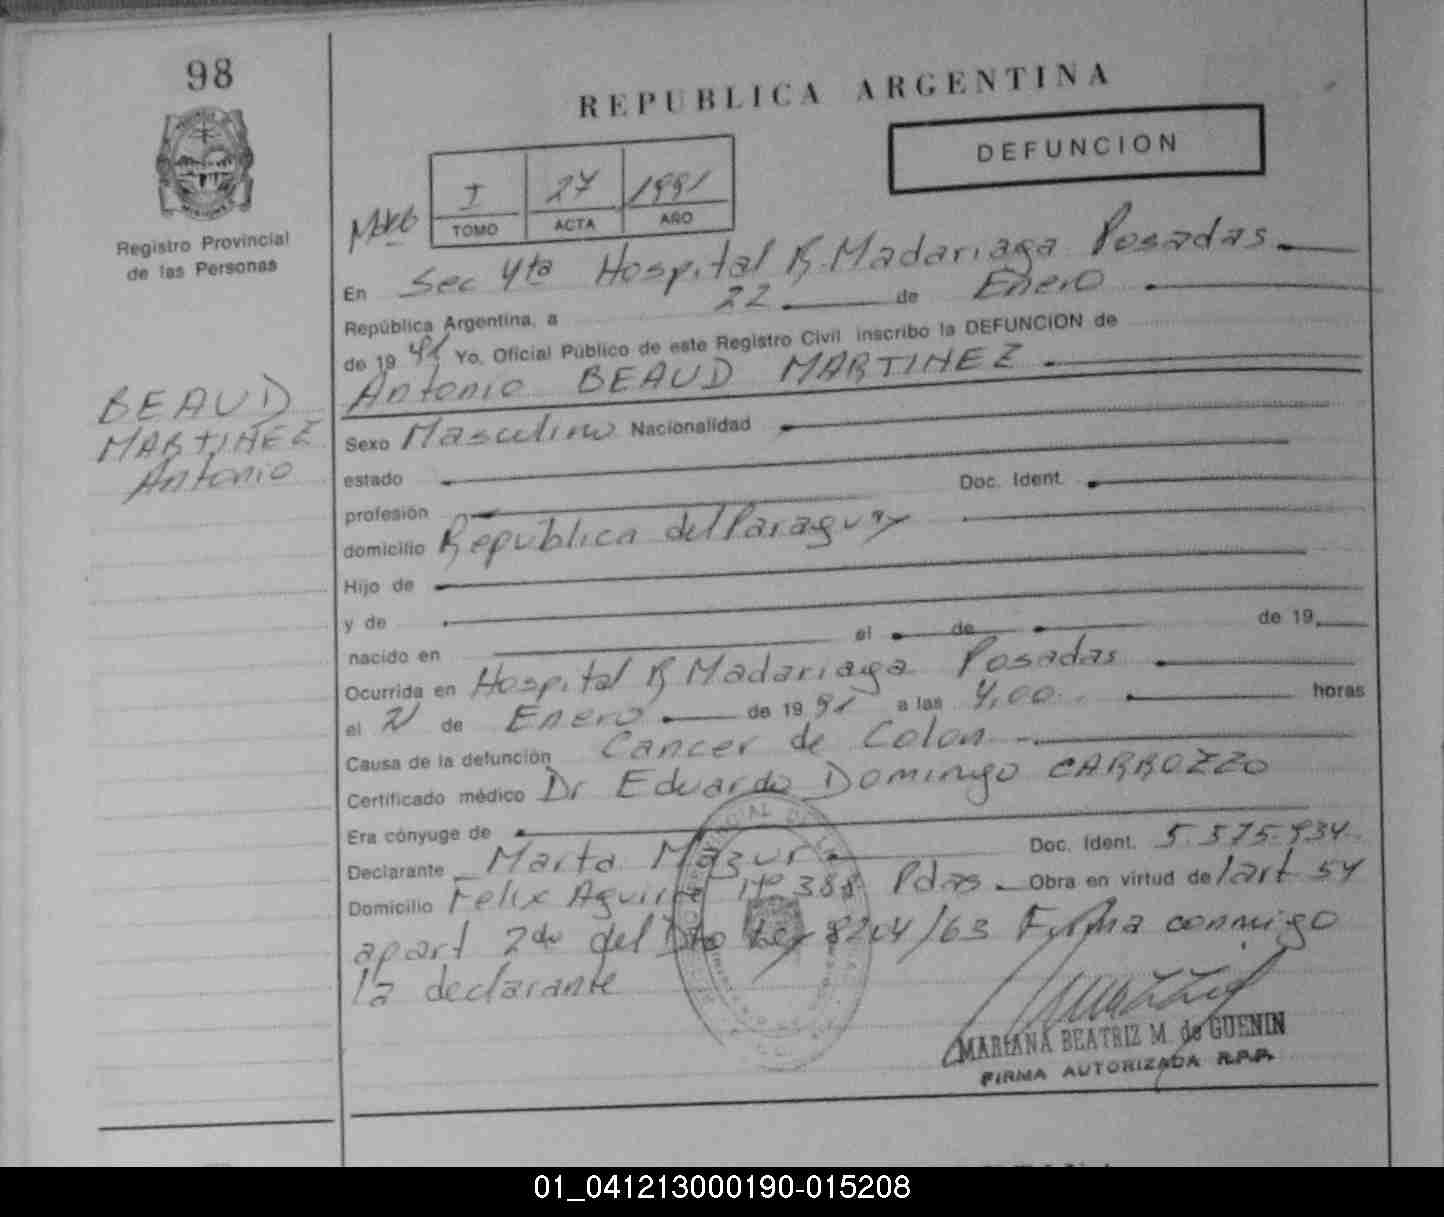 98
Registro Provincial
de las Personas
BEAUD
MARTINEZ
Antonio
REPUBLICA ARGENTINA
DEFUNCION
I 27 1991
TOMO ACTA AÑO
En Sec 4ta Hospital R. Madariaga Posadas
República Argentina, a 22 de Enero
de 19 91 Yo, Oficial Público de este Registro Civil inscribo la DEFUNCION de
Antonio BEAUD MARTINEZ
Sexo Masculino Nacionalidad
estado
profesión Doc. Ident.
domicilio Republica del Paraguay
Hijo de
y de
nacido en el de de 19
Ocurrida en Hospital R Madariaga Posadas
el 21 de Enero de 19 91 a las 4,00 horas
Causa de la defunción Cancer de Colon
Certificado médico Dr Eduardo Domingo CARROZZO
Era cónyuge de
Declarante Marta Mazur Doc. Ident. 5.575.934
Domicilio Felix Aguirre Nº 388 Pdas. Obra en virtud del art 54
apart 2do del Dto Ley 8204/63 Firma conmigo
la declarante
MARIANA BEATRIZ M. de GUENIN
FIRMA AUTORIZADA R.P.P.
01_041213000190-015208